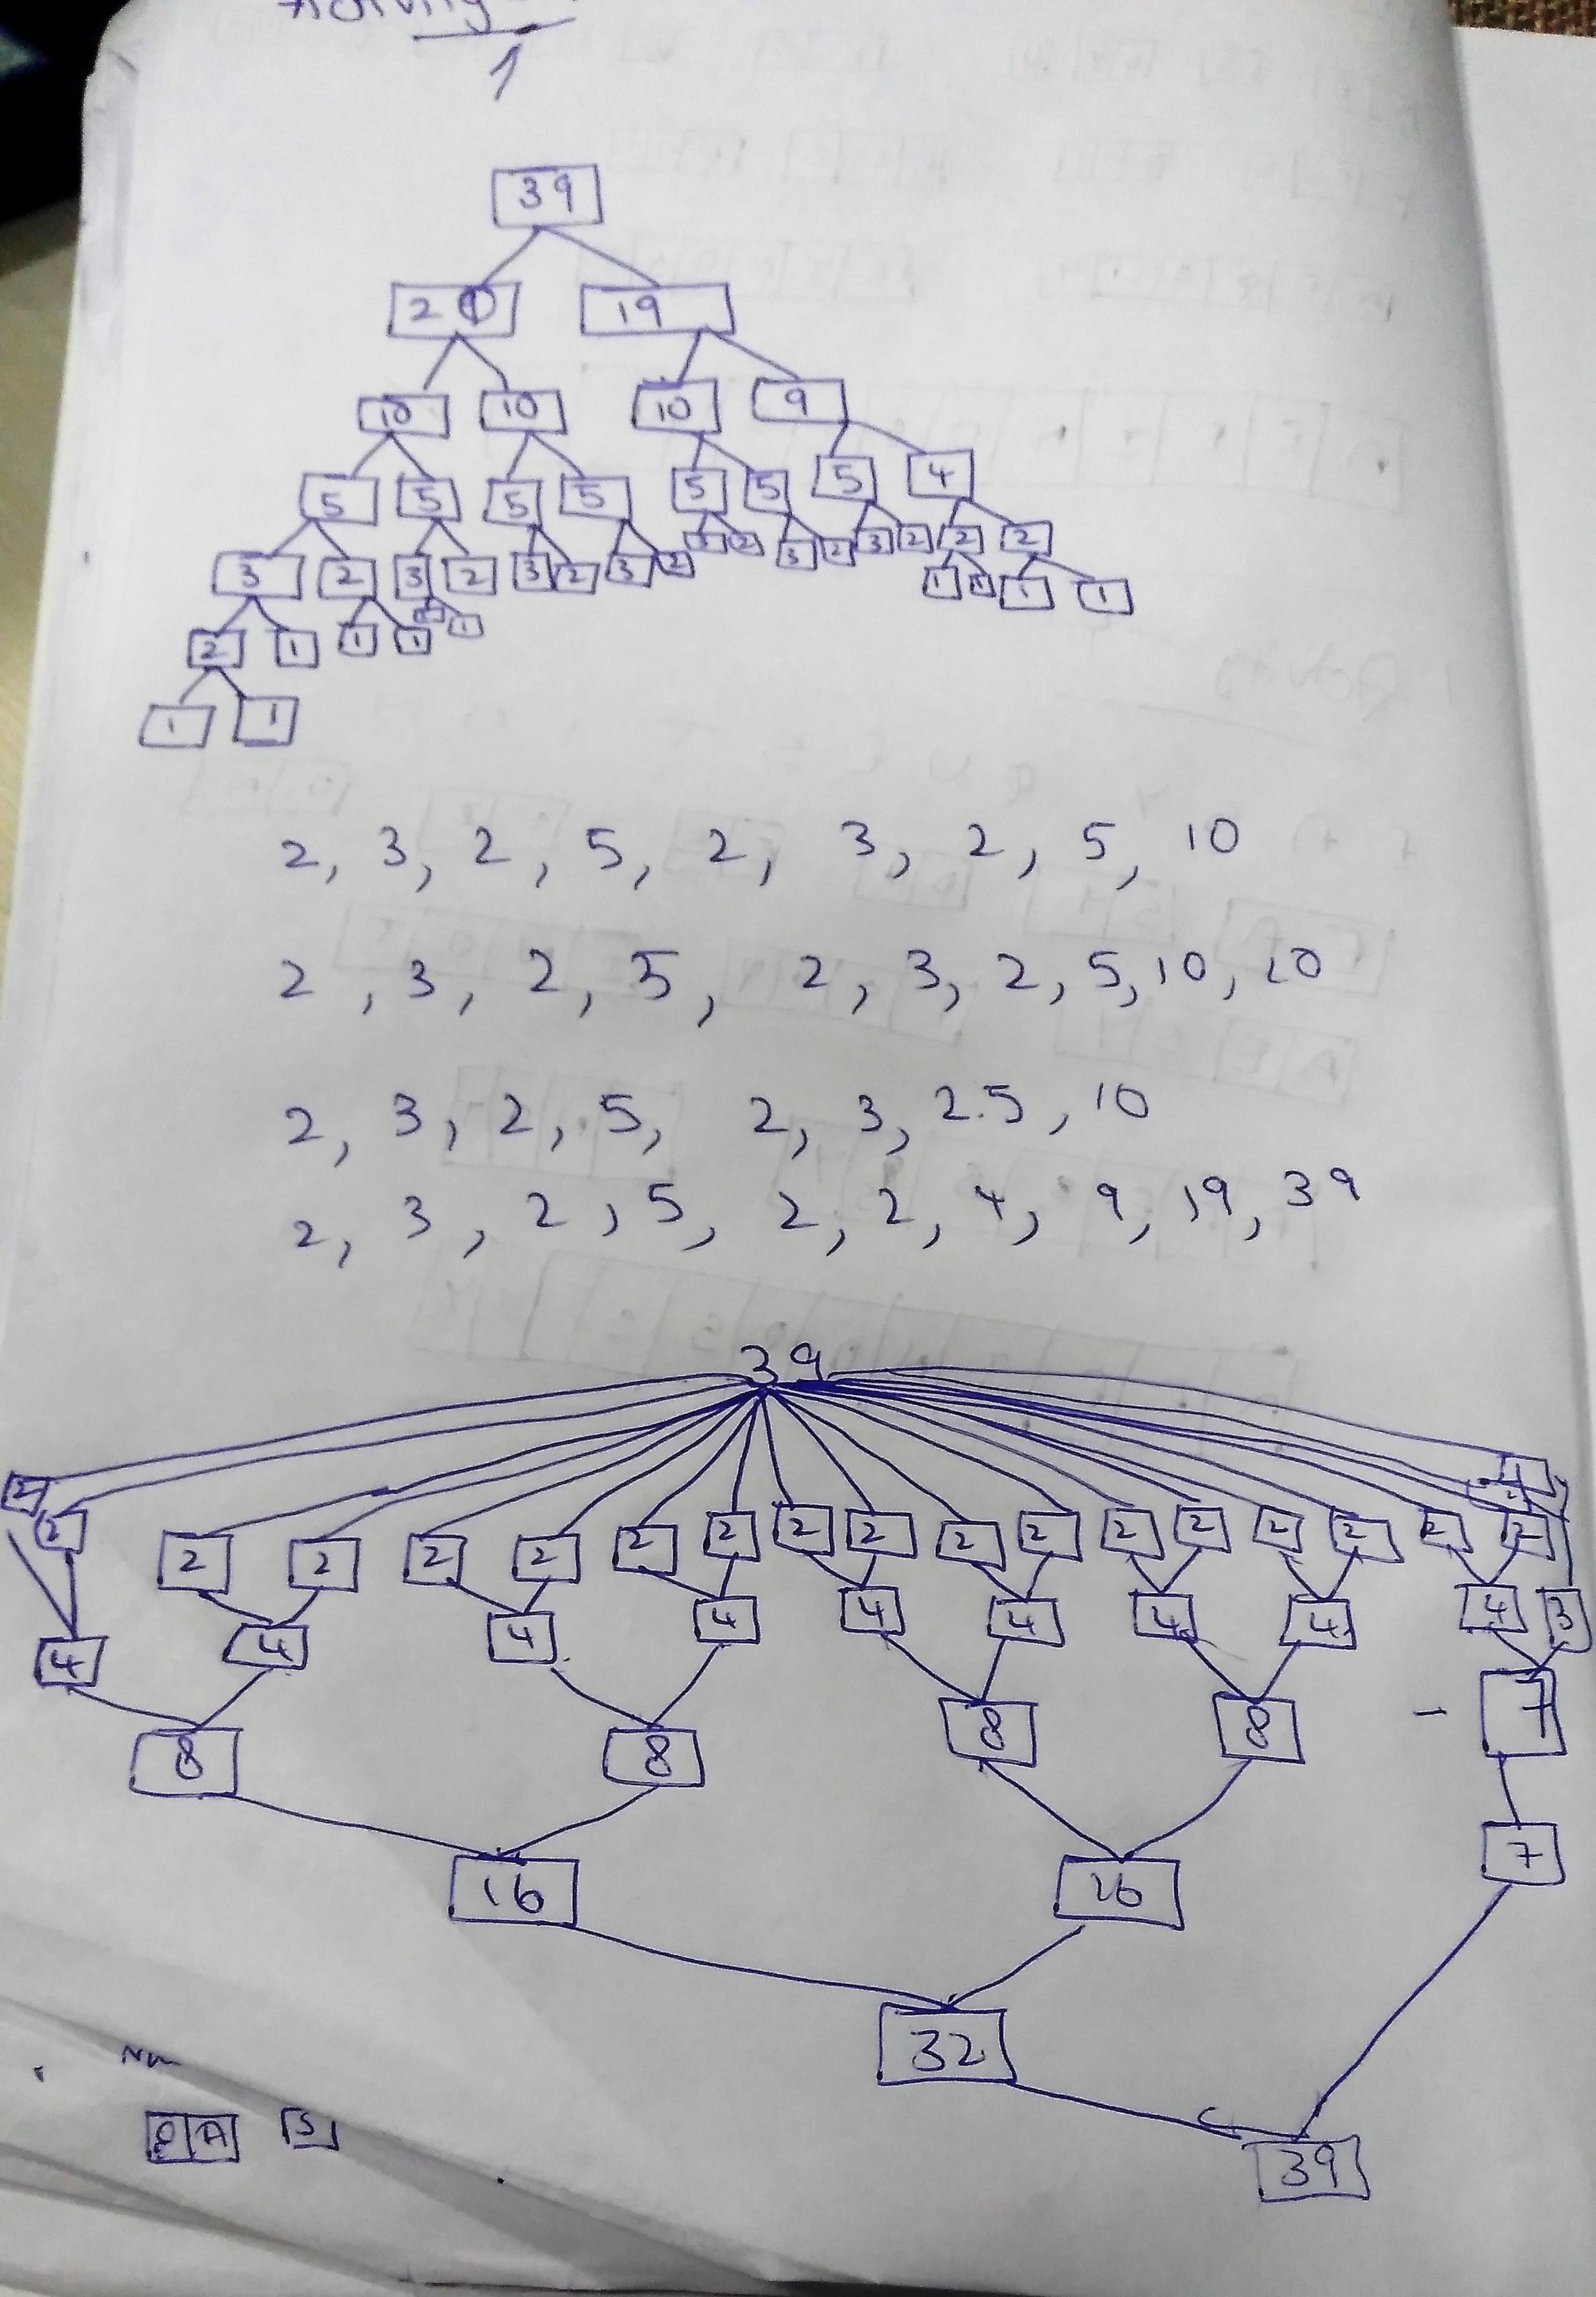 Activity
1
39
20 19
10 10 10 9
5 5 5 5 5 5 5 4
3 2 3 2 3 2 3 2 3 2 3 2 3 2 2 2
2 1 1 1 1 1 1 1 1
1 1
2, 3, 2, 5, 2, 3, 2, 5, 10
2, 3, 2, 5, 2, 3, 2, 5, 10, 10
2, 3, 2, 5, 2, 3, 2.5, 10
2, 3, 2, 5, 2, 2, 4, 9, 19, 39
39
2 2 2 2 2 2 2 2 2 2 2 2 2 2 2 2 2 2
4 4 4 4 4 4 4 4 4 3
8 8 8 8 - 7
16 16 7
32
39
A S